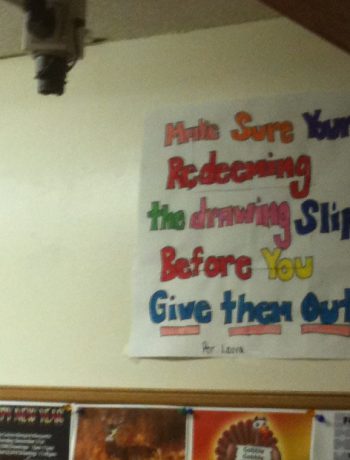 Make Sure Your
Redeeming
the drawing Slip
Before You
Give them Out
Per Laura
PPY NEW YEAR